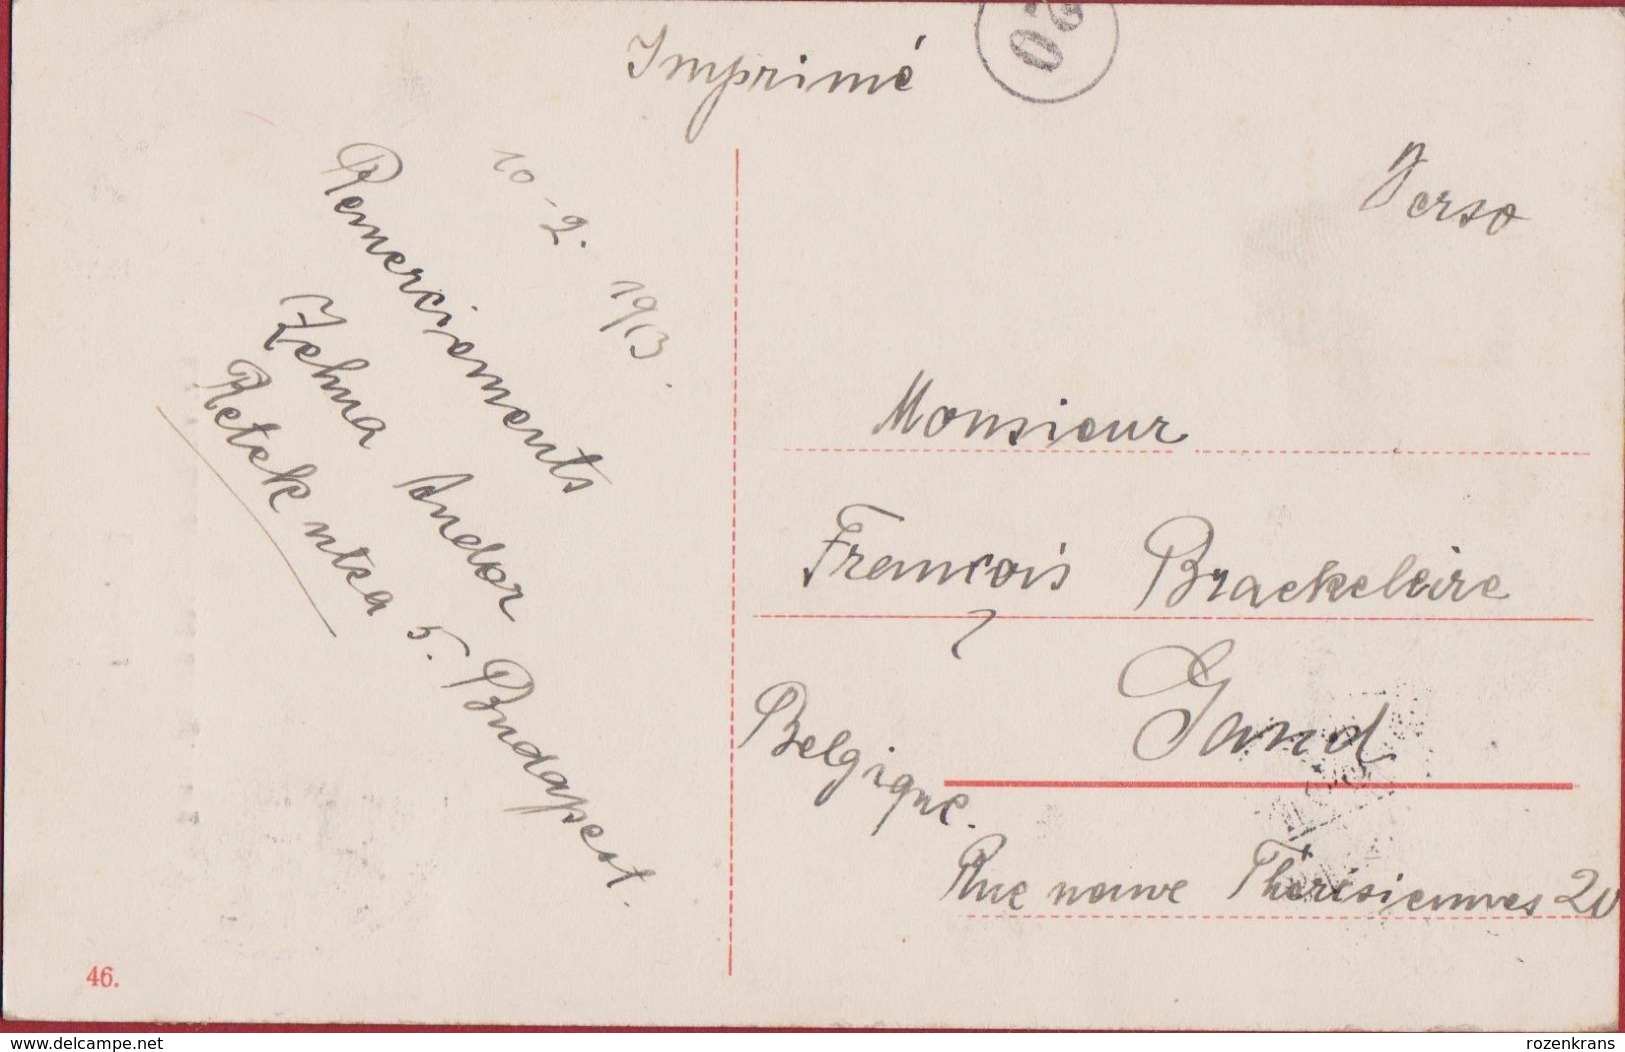 Imprimé
20
Verso
10-2. 1913.
Remerciements
Zehna Andor
Retek utca 5. Budapest.
Monsieur
François Brackeleire
Gand
Belgique.
Rue neuve Therésiennes 20
46.
delcampe.net
rozenkrans